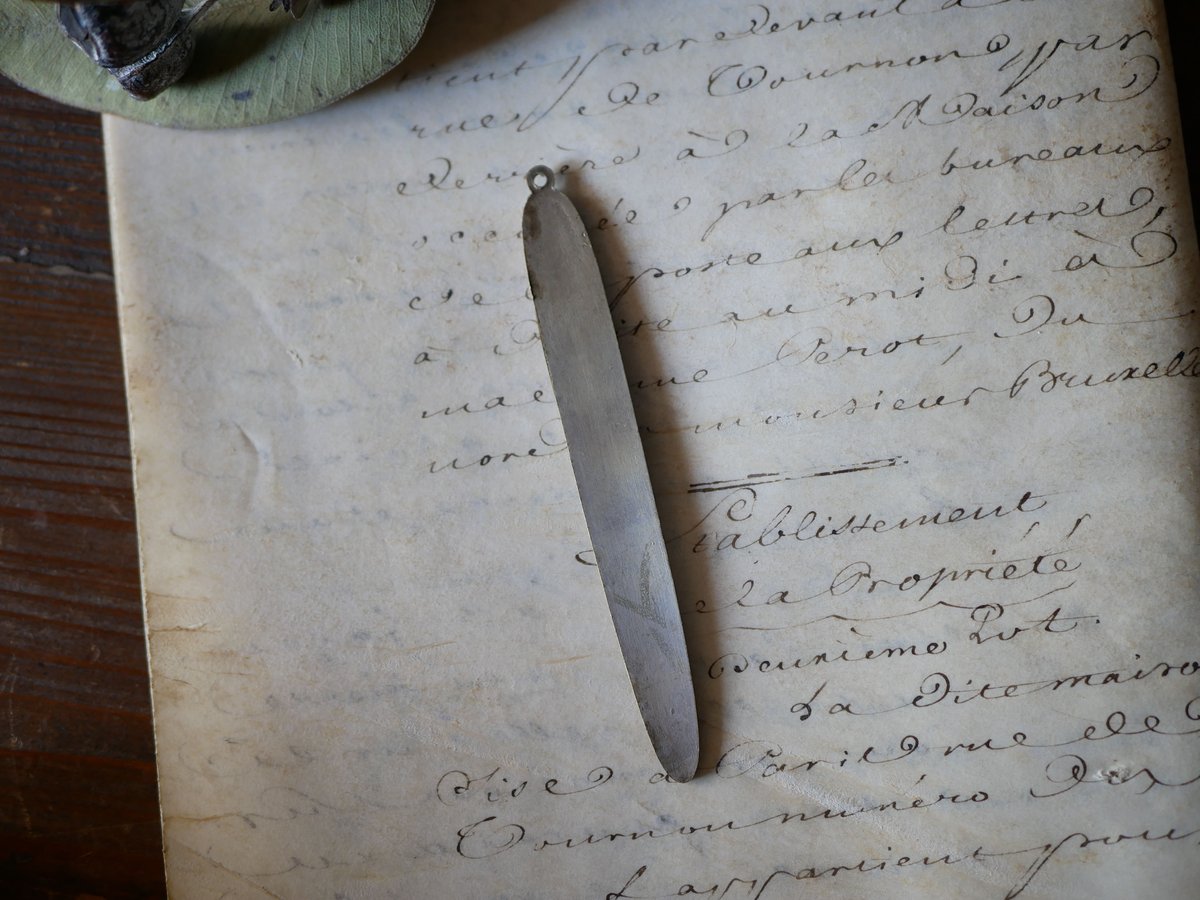 tient par devant à
rue de Tournon, par
derrière à la Maison
par les bureaux
de poste aux lettres,
à au midi à
Perot, Du
nord monsieur Bruxelle
Etablissement
de la Propriété
Deuxième Lot.
La Dite maison
Sise à Paris rue de
Tournon numéro Dix
appartient pour